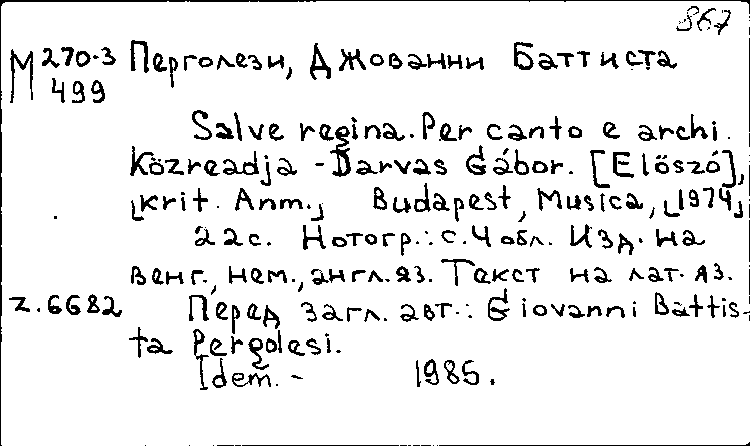 867
М 270-3 Перголези, Джованни Баттиста
499
Salve regina. Per canto e archi.
Közreadja - Darvas Gábor. [Előszó],
[krit. Anm.] Budapest, Musica, [1974]
22с. Нотогр.: с. 4 обл. Изд. на
венг., нем., англ. яз. Текст на лат. яз.
Z.6682 Перед загл. авт.: Giovanni Battis-
ta Pergolesi.
Idem. - 1985.